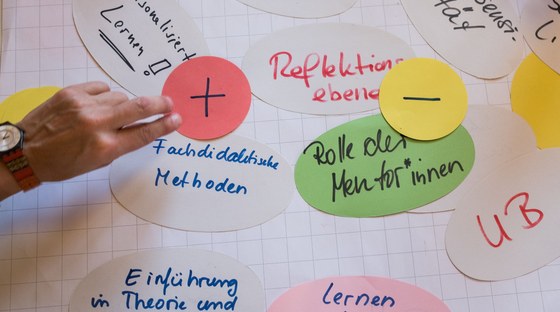 Lernen !!
+
Reflektions
ebene
−
Fachdidaktische
Methoden
Rolle der
Mentor*innen
UB
Einführung
in Theorie und
lernen